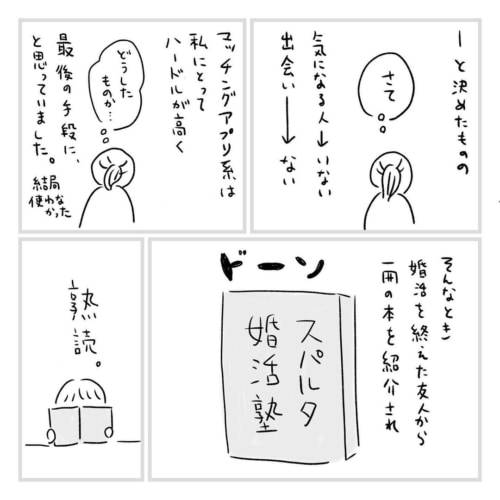 ーと決めたものの
さて
気になる人→いない
出会い→ない
マッチングアプリ系は
私にとって
ハードルが高く
どうした
ものか…
最後の手段に、
と思っていました。
結局
使わなかった
そんなとき
婚活を終えた友人から
一冊の本を紹介され
ドーン
スパルタ
婚活塾
熟読。